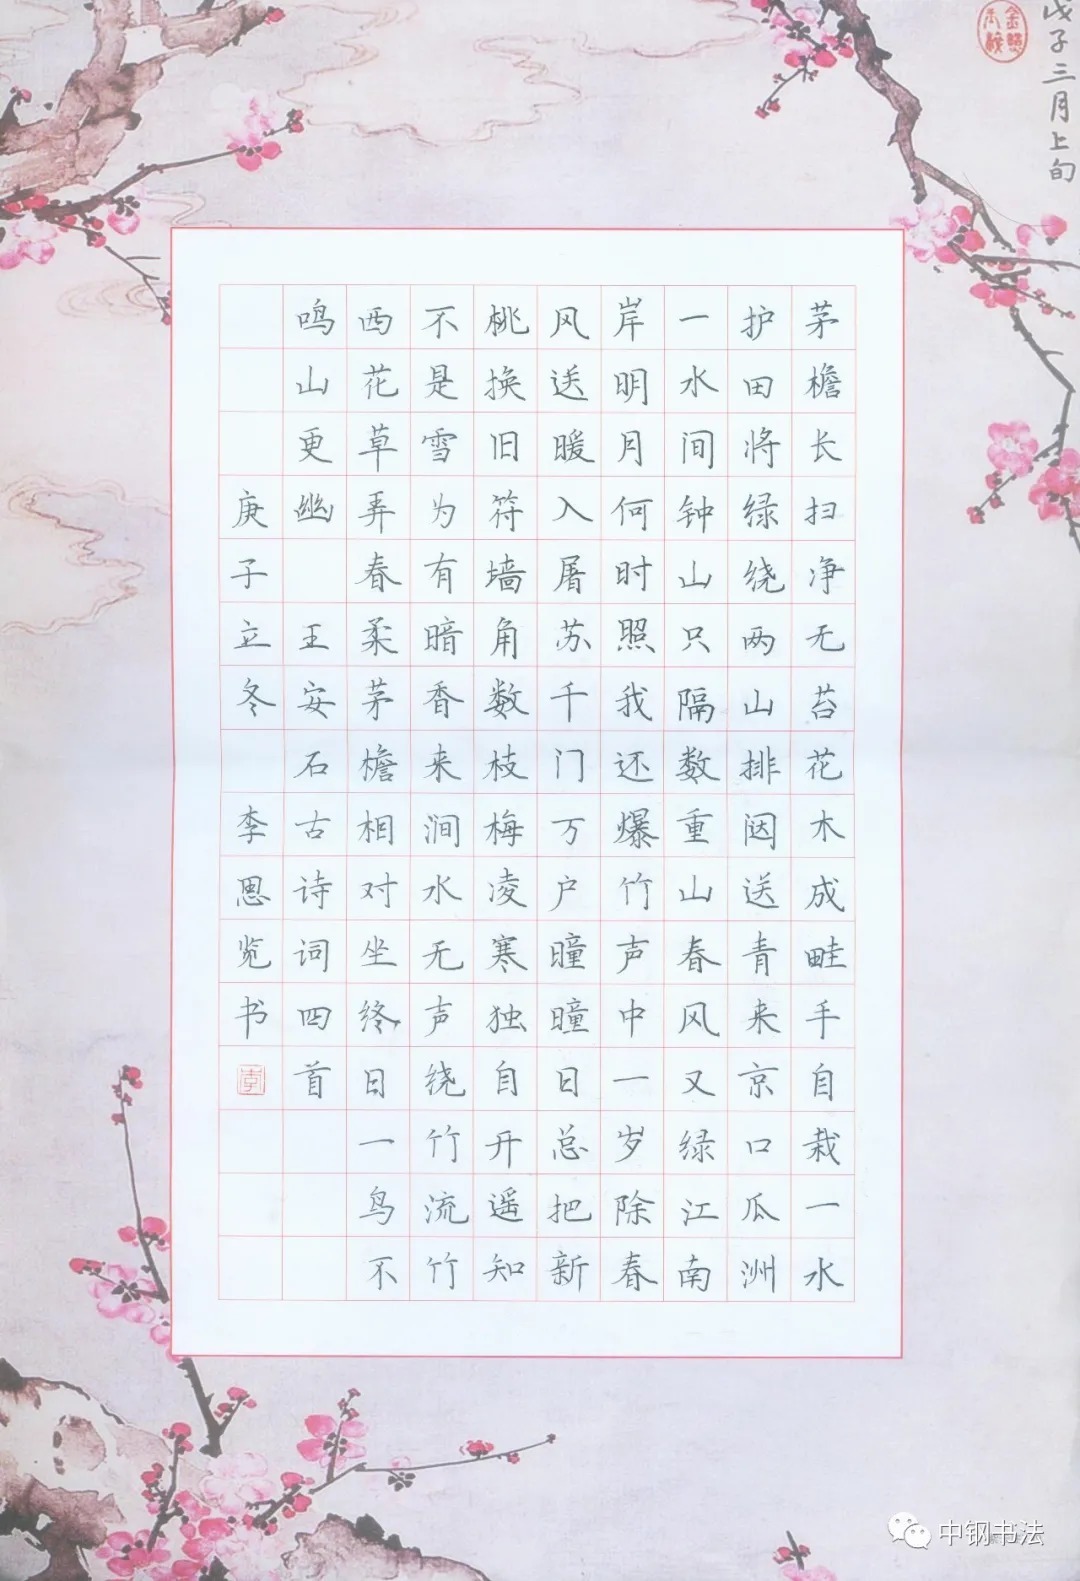 茅檐长扫净无苔花木成畦手自栽一水
护田将绿绕两山排闼送青来京口瓜洲
一水间钟山只隔数重山春风又绿江南
岸明月何时照我还爆竹声中一岁除春
风送暖入屠苏千门万户曈曈日总把新
桃换旧符墙角数枝梅凌寒独自开遥知
不是雪为有暗香来涧水无声绕竹流竹
西花草弄春柔茅檐相对坐终日一鸟不
鸣山更幽 王安石古诗词四首
庚子立冬 李恩览书
李
戊子三月上旬
中钢书法